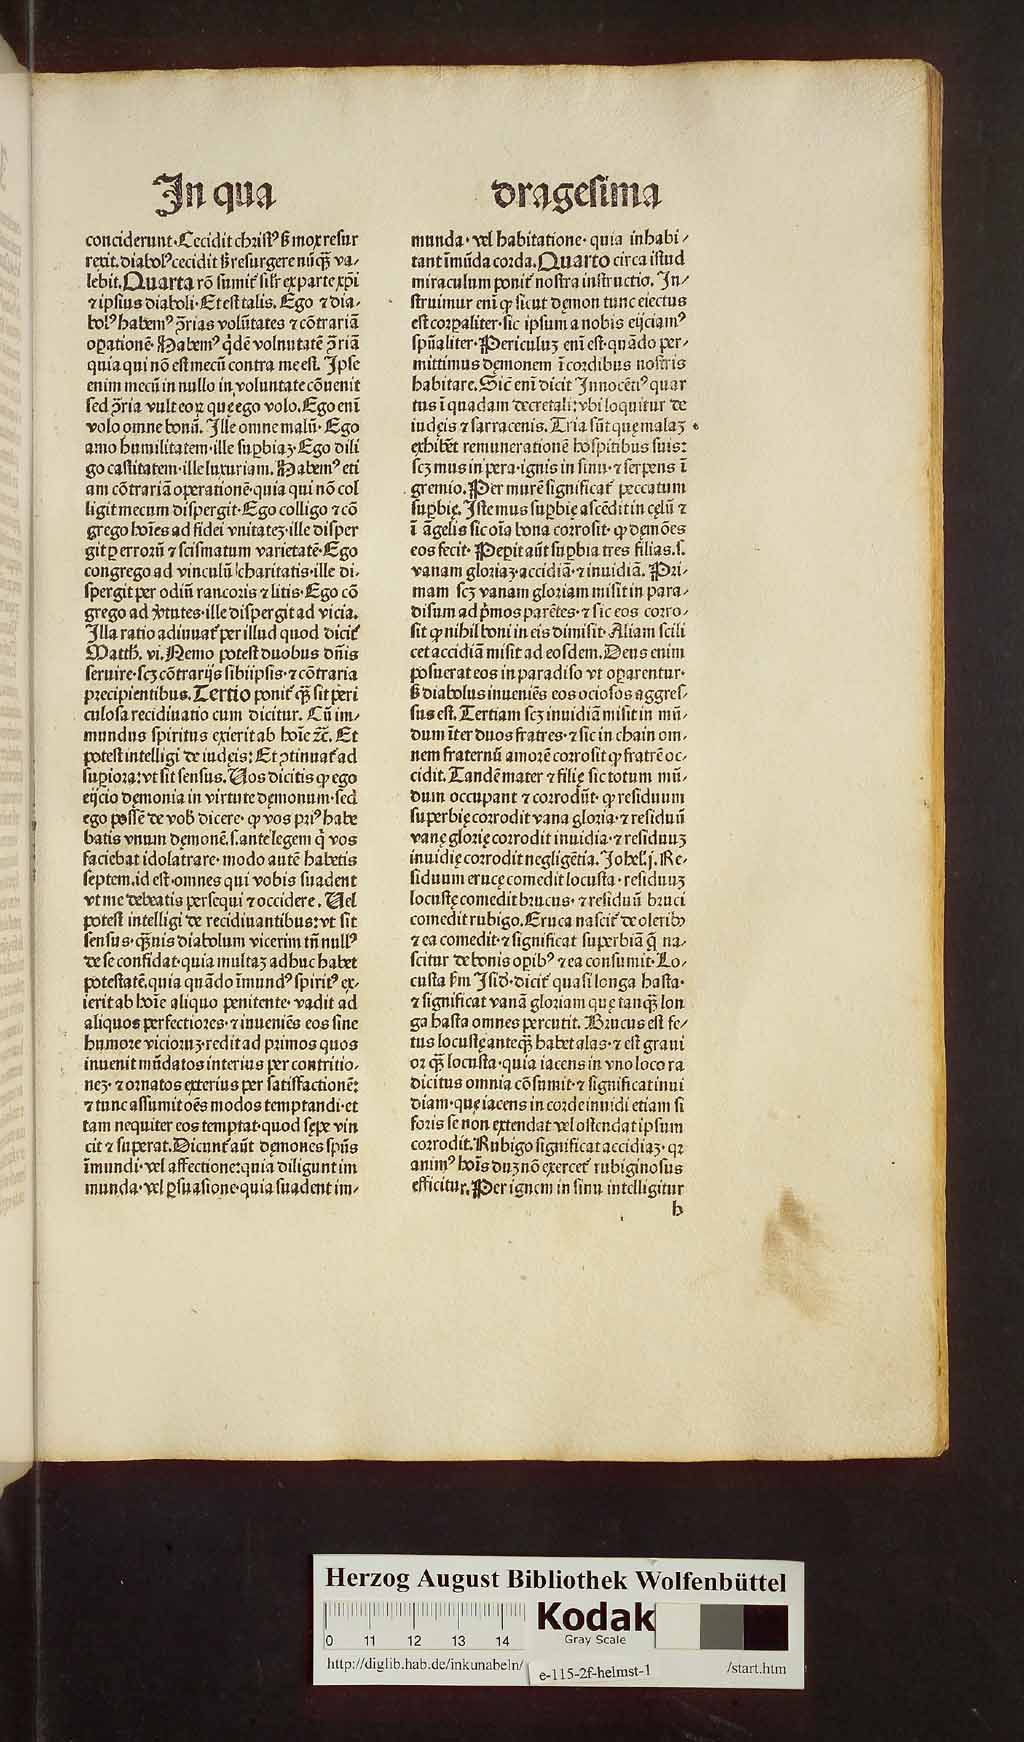 In qua
dragesima
conciderunt·Cecidit christꝰ ß mox resur
rexit.diabolꝰ cecidit ß resurgere nūꝗ̄ va⸗
lebit.Quarta rō sumit᷑ silꝛ ex parte xp̄i
⁊ ipsius diaboli·Et est talis. Ego ⁊ dia⸗
bolꝰ habemꝰ ꝯ̄rias volūtates ⁊ cōtrariā
oꝑationē·Habemꝰ q̇dē volnutatē ꝯ̄riā
quia qui nō est mecū contra me est. Ipse
enim mecū in nullo in voluntate cōuenit
sed ꝯ̄ria vult eoꝝ quę ego volo.Ego enī
volo omne bonū. Ille omne malū·Ego
amo humilitatem·ille suꝑbiaꝫ·Ego dili
go castitatem·ille luxuriam. Habemꝰ eti
am cōtrariā operationē·quia qui nō col
ligit mecum dispergit·Ego colligo ⁊ cō
grego hoīes ad fidei vnitateꝫ·ille disper
git ꝑ errorū ⁊ scismatum varietatē·Ego
congrego ad vinculū charitatis·ille di⸗
spergit per odiū rancoris ⁊ litis·Ego cō
grego ad v̓tutes·ille dispergit ad vicia.
Illa ratio adinuat᷑ per illud quod dicit᷑
Matth. vi. Nemo potest duobus dn̄is
seruire·scꝫ cōtrarijs sibiipsis·⁊ cōtraria
precipientibus. Tertio ponit᷑ ꝙ̄ sit peri
culosa recidiuatio cum dicitur. Cū im⸗
mundus spiritus exierit ab hoīe ⁊c̄. Et
potest intelligi de iudęis: Et ꝯtinuat᷑ ad
suꝑiora: vt sit sensus. Uos dicitis ꝙ ego
eijcio dęmonia in virtute dęmonum·sed
ego possē de vob̓ dicere·ꝙ vos priꝰ habe
batis vnum dęmonē.s.ante legem q̇ vos
faciebat idolatrare·modo autē habetis
septem.id est·omnes qui vobis suadent
vt me debeatis persequi ⁊ occidere. Uel
potest intelligi de recidiuantibus: vt sit
sensus·ꝙ̄uis diabolum vicerim tn̄ nullꝰ
de se confidat·quia multaꝫ adhuc habet
potestatē.quia quādo īmundꝰ spiritꝰ ex⸗
ierit ab hoīe aliquo penitente·vadit ad
aliquos perfectiores·⁊ inueniēs eos sine
humore vicioruꝫ·redit ad primos quos
inuenit mūdatos interius per contritio⸗
neꝫ·⁊ ornatos exterius per satisfactionē:
⁊ tunc assumit oēs modos temptandi·et
tam nequiter eos temptat·quod sępe vin
cit ⁊ superat.Dicunt᷑ aūt dęmones spūs
īmundi·vel affectione:quia diligunt im
munda·vel ꝑsuasione·quia suadent im⸗
munda·vel habitatione·quia inhabi⸗
tant īmūda corda.Quarto circa istud
miraculum ponit᷑ nostra instructio. In⸗
struimur enī ꝙ sicut dęmon tunc eiectus
est corꝑaliter·sic ipsum a nobis eijciamꝰ
spūaliter·Periculuꝫ enī est·quādo per⸗
mittimus dęmonem ī cordibus nostris
habitare.Sic̄ enī dicit Innocētiꝰ quar
tus ī quadam decretali:vbi loquitur de
iudęis ⁊ sarracenis. Tria sūt quę malaꝫ
exhibēt remunerationē hospitibus suis:
scꝫ mus in pera·ignis in sinu·⁊ serpens ī
gremio.Per murē significat᷑ peccatum
suꝑbię. Iste mus suꝑbię ascēdit in cęlū ⁊
ī āgelis sic oīa bona corrosit·ꝙ dęmōes
eos fecit·Peꝑit aūt suꝑbia tres filias.s.
vanam gloriaꝫ·accidiā·⁊ inuidiā. Pri⸗
mam scꝫ vanam gloriam misit in para⸗
disum ad pͥmos parētes·⁊ sic eos corro⸗
sit ꝙ nihil boni in eis dimisit·Aliam scili
cet accidiā misit ad eosdem.Deus enim
posuerat eos in paradiso vt oꝑarentur·
ß diabolus inueniēs eos ociosos aggres⸗
sus est. Tertiam scꝫ inuidiā misit in mū⸗
dum īter duos fratres·⁊ sic in chain om⸗
nem fraternū amorē corrosit ꝙ fratrē oc⸗
cidit. Tandē mater ⁊ filię sic totum mū⸗
dum occupant ⁊ corrodūt·ꝙ residuum
superbię corrodit vana gloria·⁊ residuū
vanę glorię corrodit inuidia·⁊ residuuꝫ
inuidię corrodit negligētia. Johel.j. Re⸗
siduum erucę comedit locusta·residuuꝫ
locustę comedit brucus·⁊ residuū bruci
comedit rubigo.Eruca nascit᷑ de oleribꝫ
⁊ ea comedit·⁊ significat superbiā q̄ na⸗
scitur de bonis oꝑibꝰ ⁊ ea consumit·Lo⸗
custa ẜm Isid̓·dicit᷑ quasi longa hasta·
⁊ significat vanā gloriam quę tanꝙ̄ lon
ga hasta omnes percutit. Brucus est fe⸗
tus locustę anteꝙ̄ habet alas·⁊ est graui
or ꝙ̄ locusta·quia iacens in vno loco ra
dicitus omnia cōsumit·⁊ significat inui
diam·quę iacens in corde inuidi etiam si
foris se non extendat vel ostendat ipsum
corrodit.Rubigo significat accidiaꝫ·qꝛ
animꝰ hoīs duꝫ nō exercet᷑ rubiginosus
efficitur. Per ignem in sinu intelligitur
b
Herzog August Bibliothek Wolfenbüttel
0 11 12 13 14
Kodak
Gray Scale
http://diglib.hab.de/inkunabeln/ e-115-2f-helmst-1 /start.htm